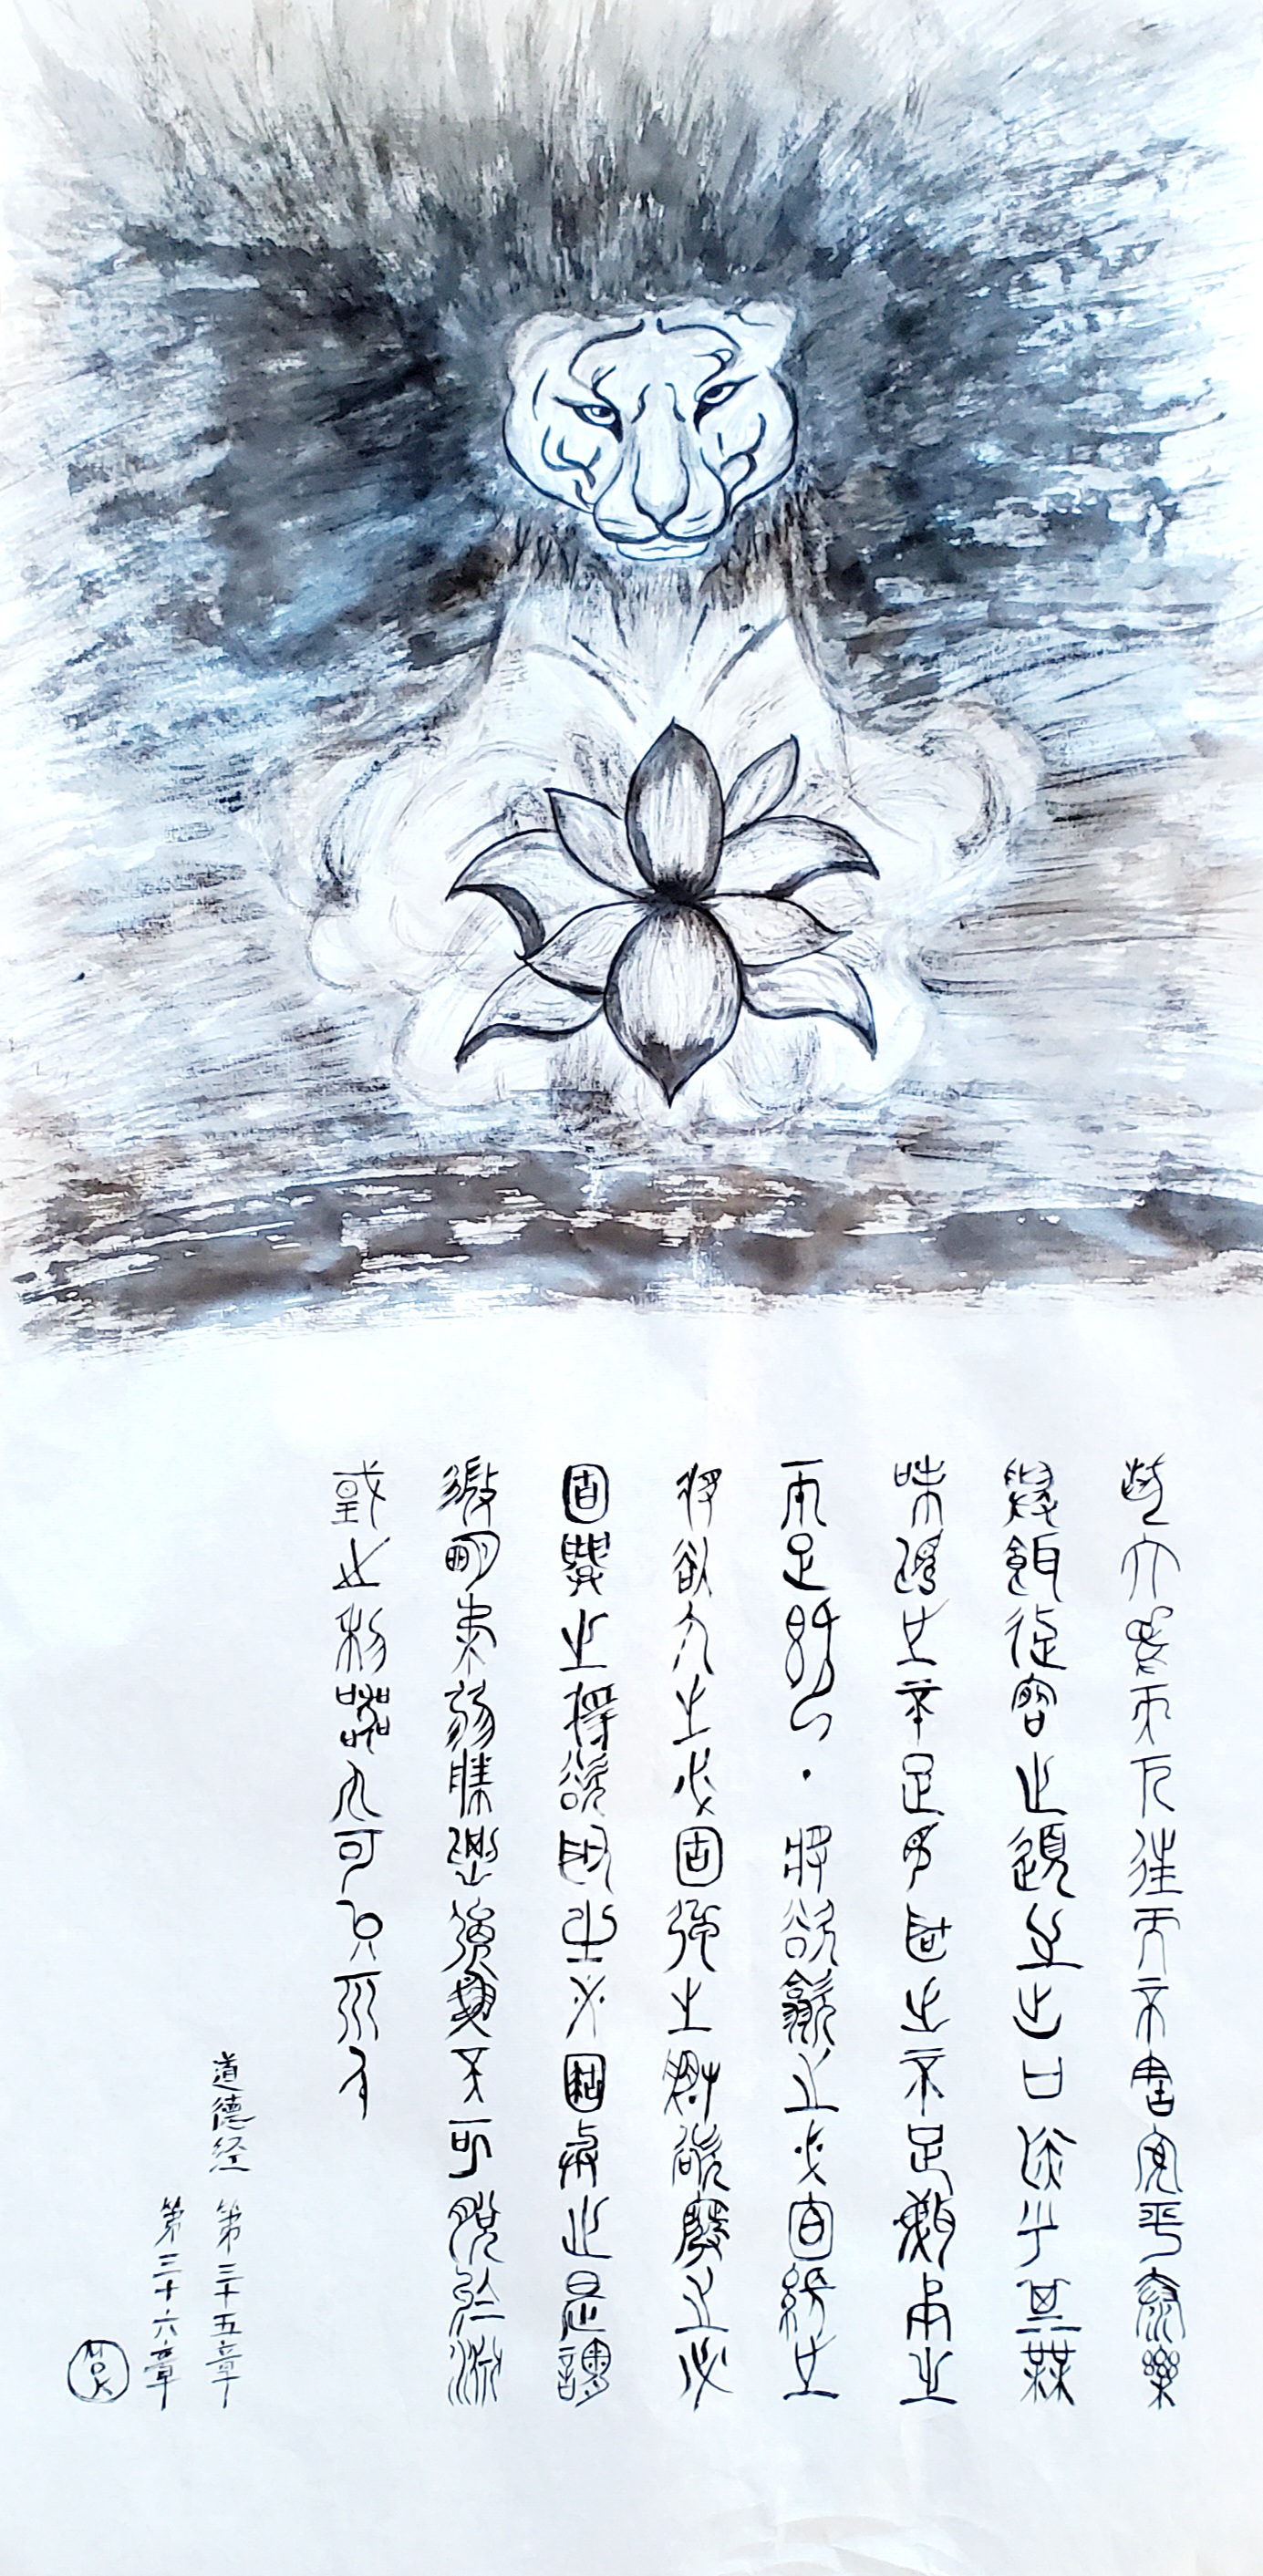 執大象天下往而不害安平泰樂
與餌過客止道之出口淡乎其無
味視之不足見聽之不足聞用之
不足既・將欲歙之必固張之
將欲弱之必固強之將欲廢之必
固興之將欲奪之必固與之是謂
微明柔弱勝剛強魚不可脫於淵
國之利器不可以示人
道德经 第三十五章
第三十六章